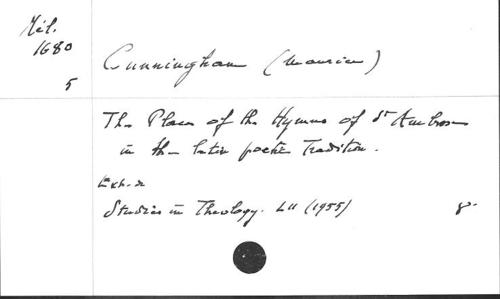 Mél.
1680
5
Cunningham (Maurice)
The Place of the Hymns of St Ambrose
in the latin poetic Tradition.
Extr. de
Studies in Theology. LII (1955)
8°